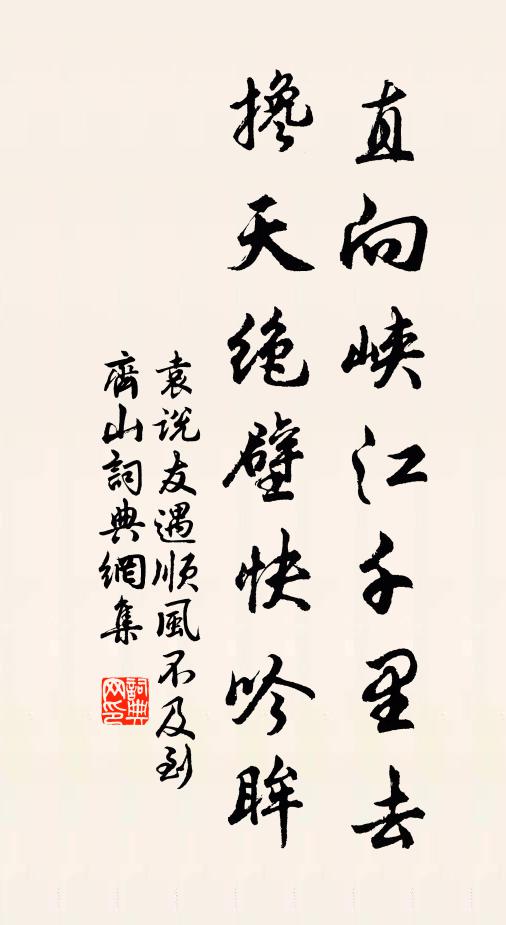 直向峡江千里去
搀天绝壁快吟眸
袁说友遇顺風不及到
齊山詞典網集
詞典
网印